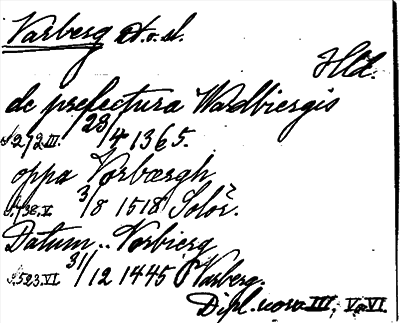 Varberg st. o. sl.
Hld.
de prefectura Wardbiergis
s. 272 III. 23/4 1365.
oppa Vorbœrgh
s. 438. V. 3/8 1518 Solör.
Datum .. Vorbierg
s. 523. VI. 31/12 1445 Varberg.
Dipl. norv. III, V o. VI.